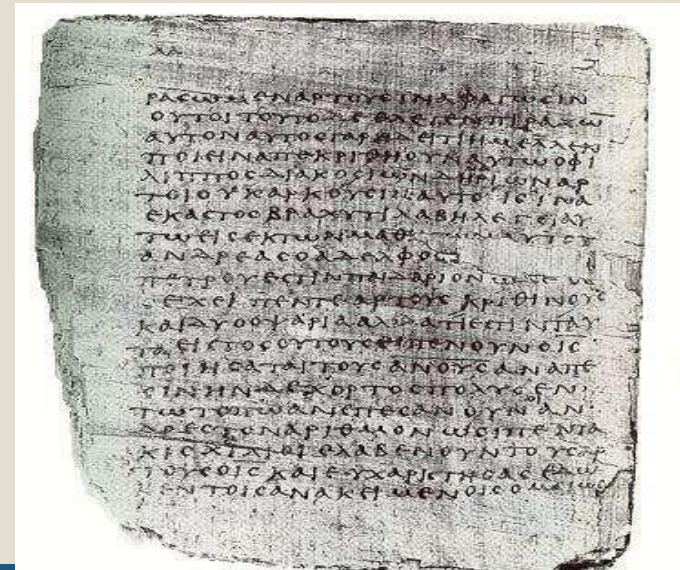 ΛΑ
ΡΑϹΩΜΕΝΑΡΤΟΥϹΙΝΑΦΑΓΩϹΙΝ
ΟΥΤΟΙΤΟΥΤΟΔΕΕΛΕΓΕΝΠΙΡΑΖΩ
ΑΥΤΟΝΑΥΤΟϹΓΑΡΗΔΕΙΤΙΗΜΕΛΛΕΝ
ΠΟΙΕΙΝΑΠΕΚΡΙΘΗΟΥΝΑΥΤΩΟΦΙ
ΛΙΠΠΟϹΔΙΑΚΟϹΙΩΝΔΗΝΑΡΙΩΝΑΡ
ΤΟΙΟΥΚΑΡΚΟΥϹΙΝΑΥΤΟΙϹΙΝΑ
ΕΚΑϹΤΟϹΒΡΑΧΥΤΙΛΑΒΗΛΕΓΕΙΑΥ
ΤΩΕΙϹΕΚΤΩΝΜΑΘΗΤΩΝΑΥΤΟΥ
ΑΝΔΡΕΑϹΟΑΔΕΛΦΟϹ
ΠΕΤΡΟΥΕϹΤΙΝΠΑΙΔΑΡΙΟΝ
ΕΧΕΙΠΕΝΤΕΑΡΤΟΥϹΚΡΙΘΙΝΟΥϹ
ΚΑΙΔΥΟΟΨΑΡΙΑΑΛΛΑΤΙΕϹΤΙΝΤΑΥ
ΤΑΕΙϹΤΟϹΟΥΤΟΥϹΕΙΠΕΝΟΥΝΟΙϹ
ΠΟΙΗϹΑΤΑΙΤΟΥϹΑΝΟΥϹΑΝΑΠΕ
ϹΙΝΗΝΔΕΧΟΡΤΟϹΠΟΛΥϹΕΝ
ΤΩΤΟΠΩΑΝΕΠΕϹΑΝΟΥΝΑΝ
ΔΡΕϹΤΟΝΑΡΙΘΜΟΝΩϹΙΠΕΝΤΑ
ΚΙϹΧΙΛΙΟΙΕΛΑΒΕΝΟΥΝΤΟΥϹΑΡ
ΤΟΥϹΟΙϹΚΑΙΕΥΧΑΡΙϹΤΗϹΑϹΕΔΩ
ΚΕΝΤΟΙϹΑΝΑΚΕΙΜΕΝΟΙϹΟΜΟΙΩϹ